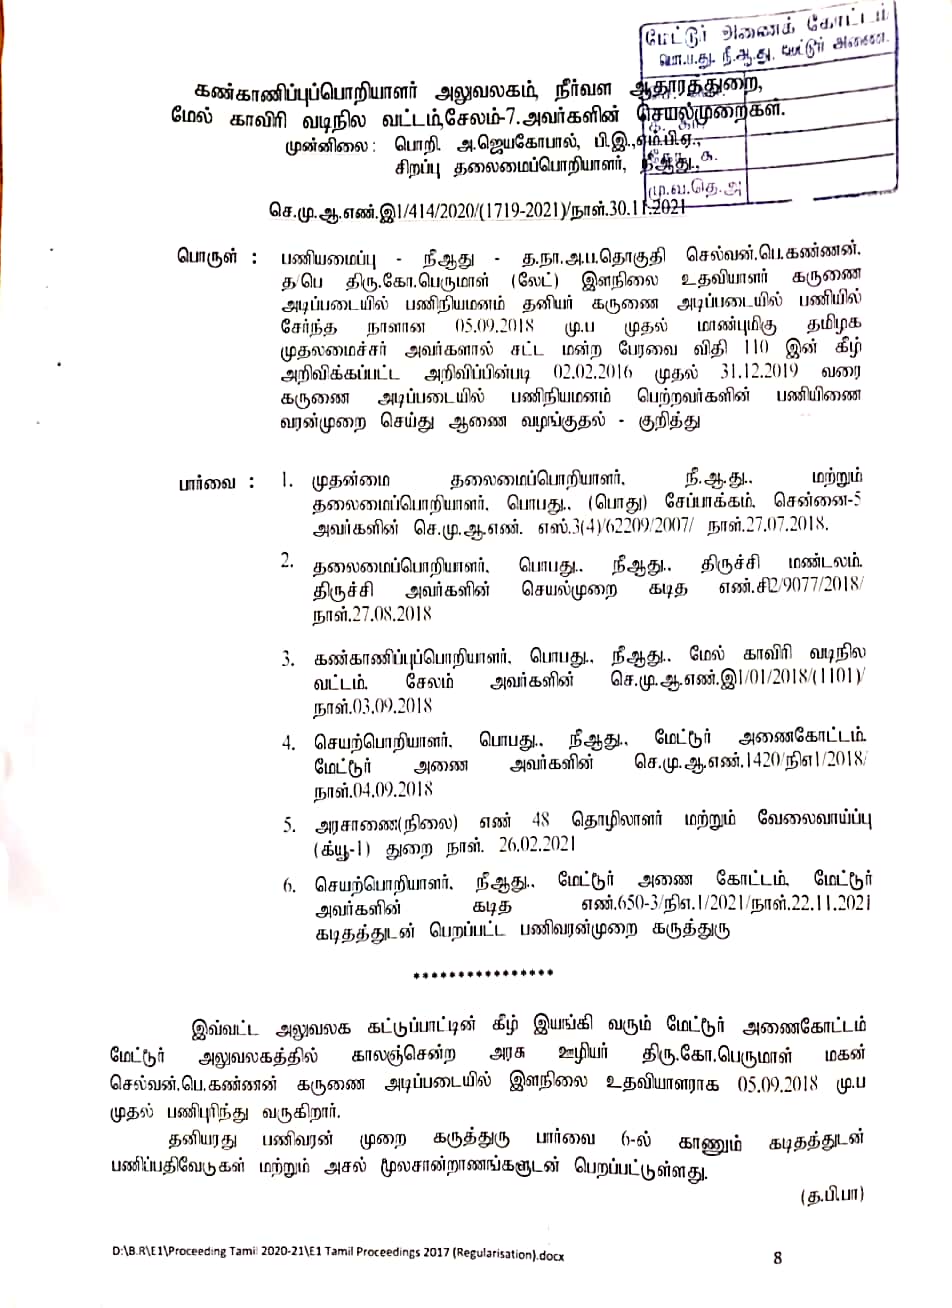 மேட்டூர் அணைக் கோட்டம்
பொ.ப.து. நீ.ஆ.து, மேட்டூர் அணை.
கண்காணிப்புப்பொறியாளர் அலுவலகம், நீர்வள ஆதாரத்துறை,
மேல் காவிரி வடிநில வட்டம்,சேலம்-7.அவர்களின் செயல்முறைகள்.
முன்னிலை : பொறி. அ.ஜெயகோபால், பி.இ.,எம்.பி.ஏ.,
சிறப்பு தலைமைப்பொறியாளர், நீஆது.,
மு.வ.தெ.அ
செ.மு.ஆ.எண்.இ1/414/2020/(1719-2021)/நாள்.30.11.2021
பொருள் : பணியமைப்பு - நீஆது - த.நா.அ.ப.தொகுதி செல்வன்.பெ.கண்ணன்.
த/பெ திரு.கோ.பெருமாள் (லேட்) இளநிலை உதவியாளர் கருணை
அடிப்படையில் பணிநியமனம் தனியர் கருணை அடிப்படையில் பணியில்
சேர்ந்த நாளான 05.09.2018 மு.ப முதல் மாண்புமிகு தமிழக
முதலமைச்சர் அவர்களால் சட்ட மன்ற பேரவை விதி 110 இன் கீழ்
அறிவிக்கப்பட்ட அறிவிப்பின்படி 02.02.2016 முதல் 31.12.2019 வரை
கருணை அடிப்படையில் பணிநியமனம் பெற்றவர்களின் பணியிணை
வரன்முறை செய்து ஆணை வழங்குதல் - குறித்து
பார்வை : 1. முதன்மை தலைமைப்பொறியாளர், நீ.ஆ.து., மற்றும்
தலைமைப்பொறியாளர், பொபது., (பொது) சேப்பாக்கம், சென்னை-5
அவர்களின் செ.மு.ஆ.எண். எஸ்.3(4)/62209/2007/ நாள்.27.07.2018.
2. தலைமைப்பொறியாளர், பொபது., நீஆது., திருச்சி மண்டலம்.
திருச்சி அவர்களின் செயல்முறை கடித எண்.சி2/9077/2018/
நாள்.27.08.2018
3. கண்காணிப்புப்பொறியாளர், பொபது., நீஆது., மேல் காவிரி வடிநில
வட்டம், சேலம் அவர்களின் செ.மு.ஆ.எண்.இ1/01/2018/(1101)/
நாள்.03.09.2018
4. செயற்பொறியாளர், பொபது., நீஆது., மேட்டூர் அணைகோட்டம்.
மேட்டூர் அணை அவர்களின் செ.மு.ஆ.எண்.1420/நிஎ1/2018/
நாள்.04.09.2018
5. அரசாணை(நிலை) எண் 48 தொழிலாளர் மற்றும் வேலைவாய்ப்பு
(க்யூ-1) துறை நாள். 26.02.2021
6. செயற்பொறியாளர், நீஆது., மேட்டூர் அணை கோட்டம், மேட்டூர்
அவர்களின் கடித எண்.650-3/நிஎ.1/2021/நாள்.22.11.2021
கடிதத்துடன் பெறப்பட்ட பணிவரன்முறை கருத்துரு
****************
இவ்வட்ட அலுவலக கட்டுப்பாட்டின் கீழ் இயங்கி வரும் மேட்டூர் அணைகோட்டம்
மேட்டூர் அலுவலகத்தில் காலஞ்சென்ற அரசு ஊழியர் திரு.கோ.பெருமாள் மகன்
செல்வன்.பெ.கண்ணன் கருணை அடிப்படையில் இளநிலை உதவியாளராக 05.09.2018 மு.ப
முதல் பணிபுரிந்து வருகிறார்.
தனியரது பணிவரன் முறை கருத்துரு பார்வை 6-ல் காணும் கடிதத்துடன்
பணிப்பதிவேடுகள் மற்றும் அசல் மூலசான்றாணங்களுடன் பெறப்பட்டுள்ளது.
(த.பி.பா)
D:\B.R\E1\Proceeding Tamil 2020-21\E1 Tamil Proceedings 2017 (Regularisation).docx 8